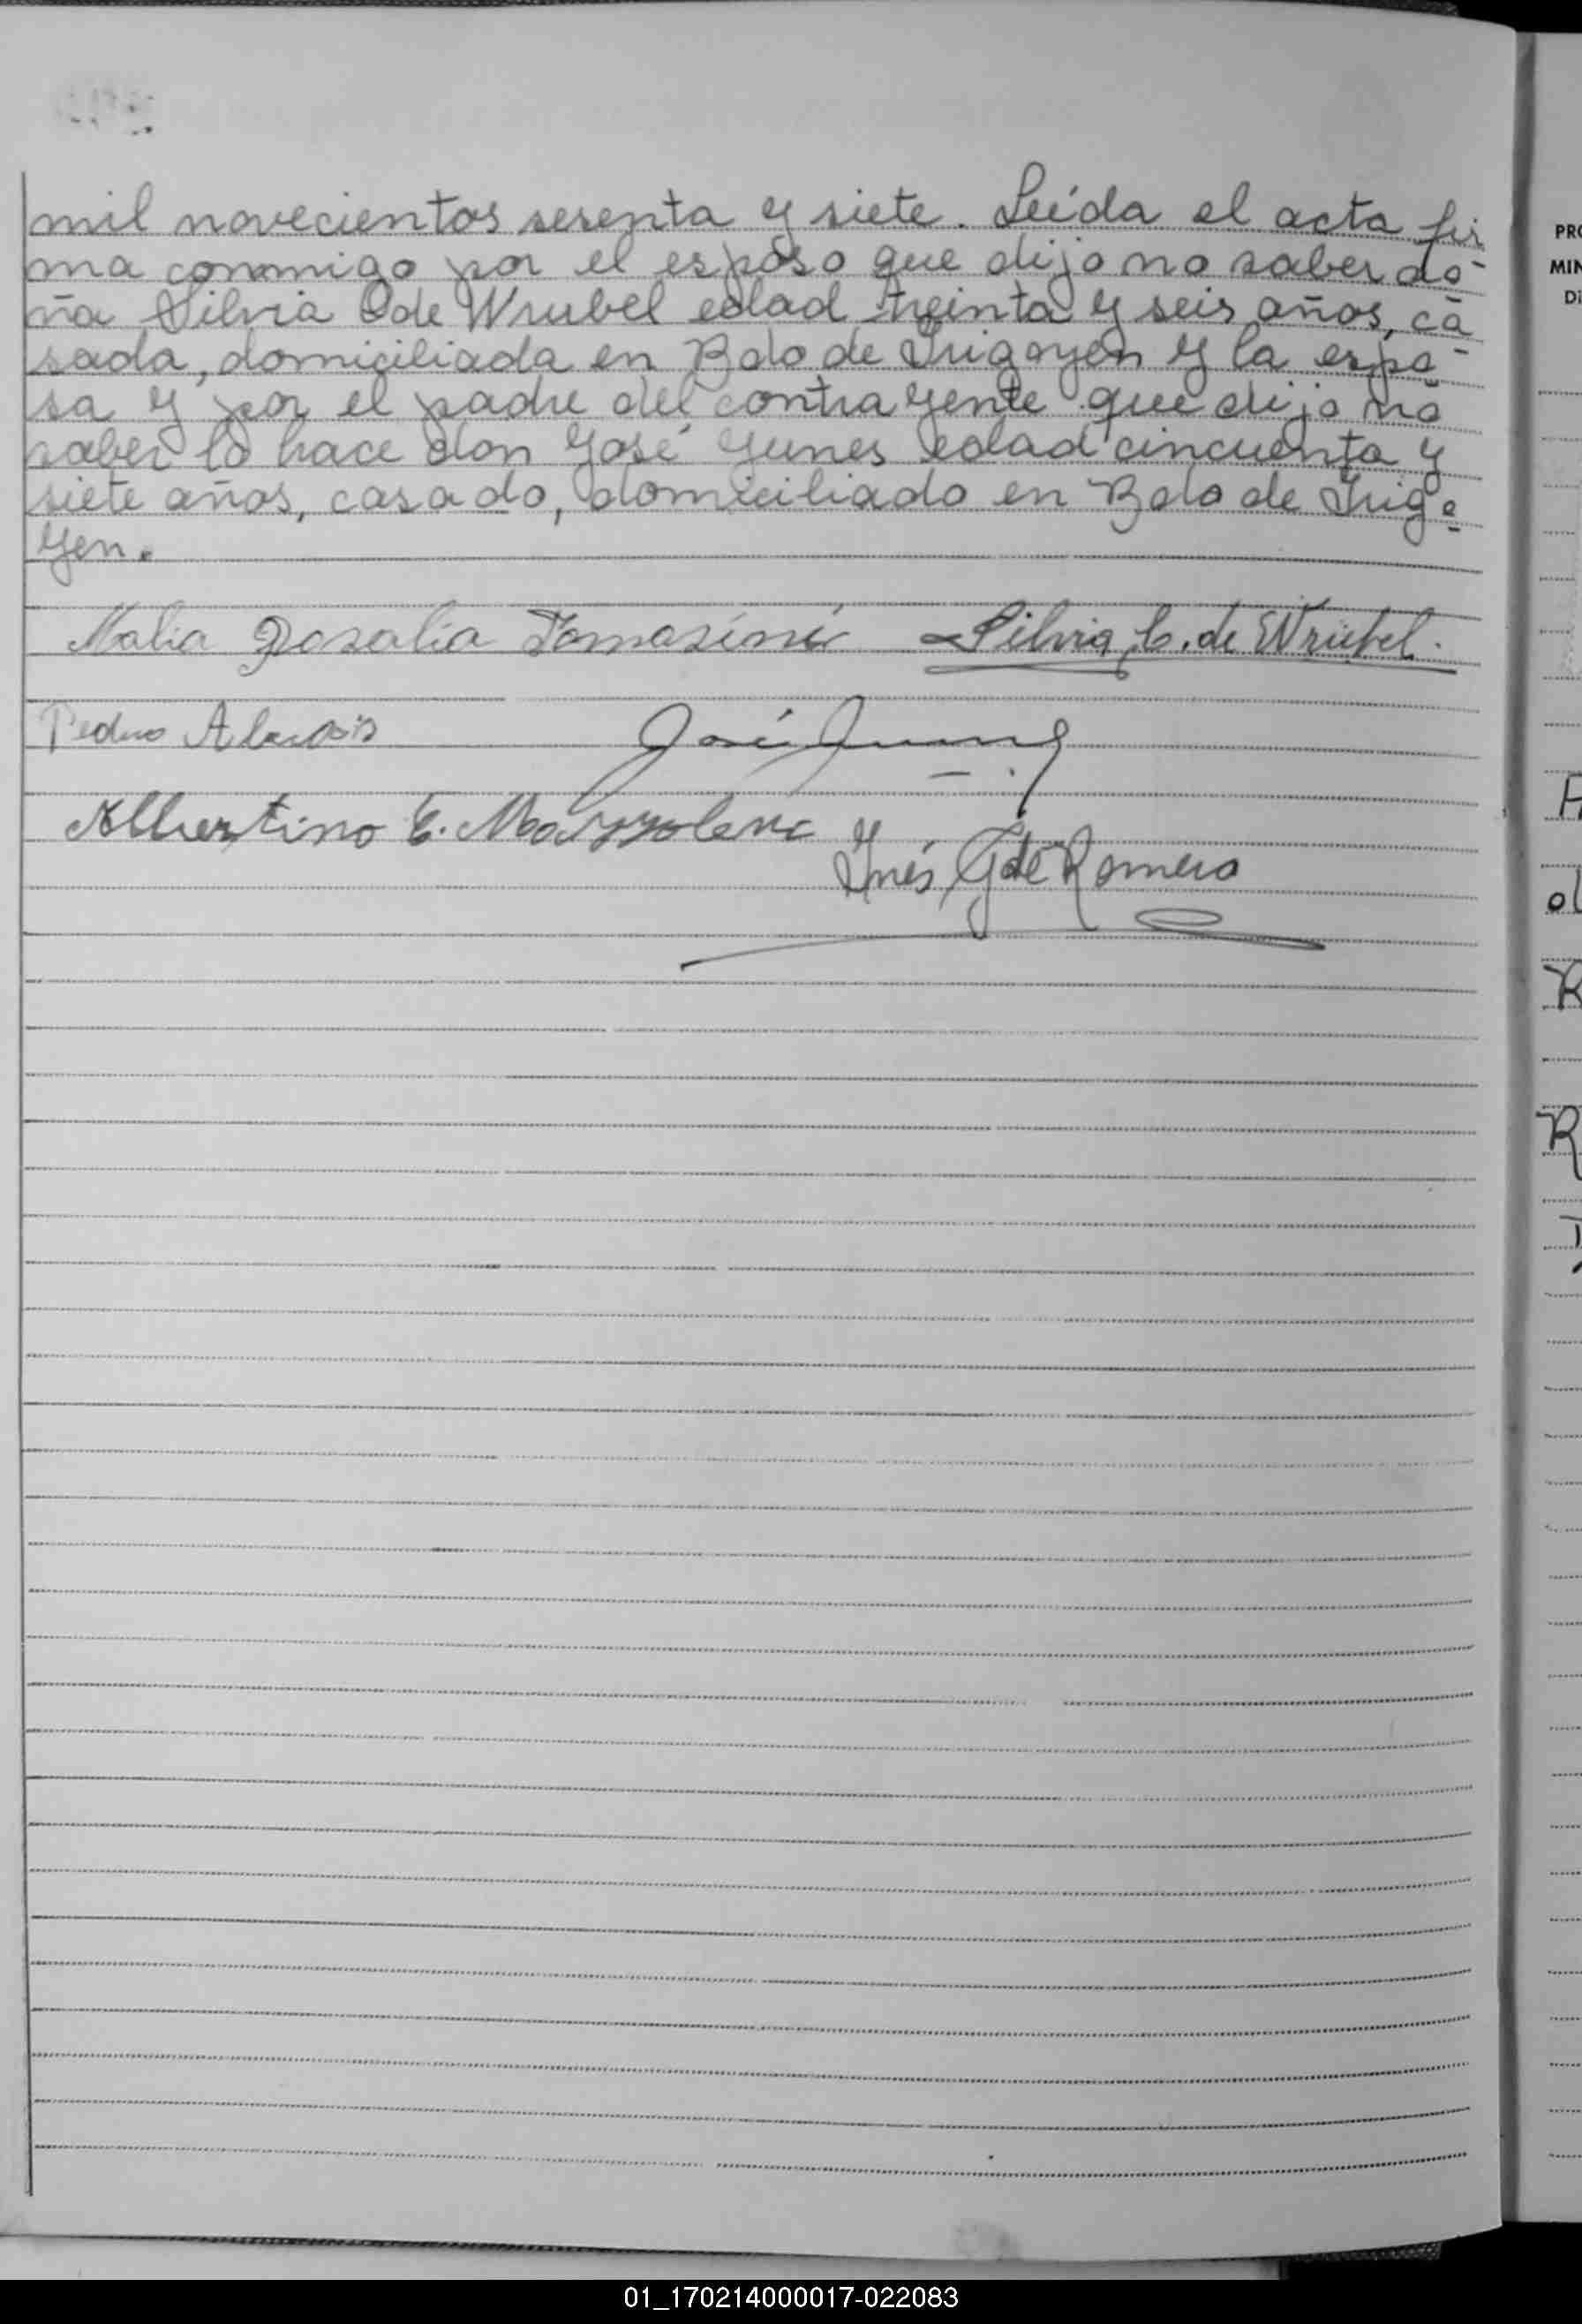 mil novecientos sesenta y siete. Leída el acta fir
ma conmigo por el esposo que dijo no saber do-
ña Silvia C de Wrubel edad treinta y seis años, ca
sada, domiciliada en Bdo de Irigoyen y la espo-
sa y por el padre del contrayente que dijo no
saber lo hace don José Yunes edad cincuenta y
siete años, casado, domiciliado en Bdo de Irigo
yen.
Rosalia Tomasini Silvia C. de Wrubel.
Pedro
José
Albertino C.
Inés G de Romero
PRO
MIN
Di
01_170214000017-022083